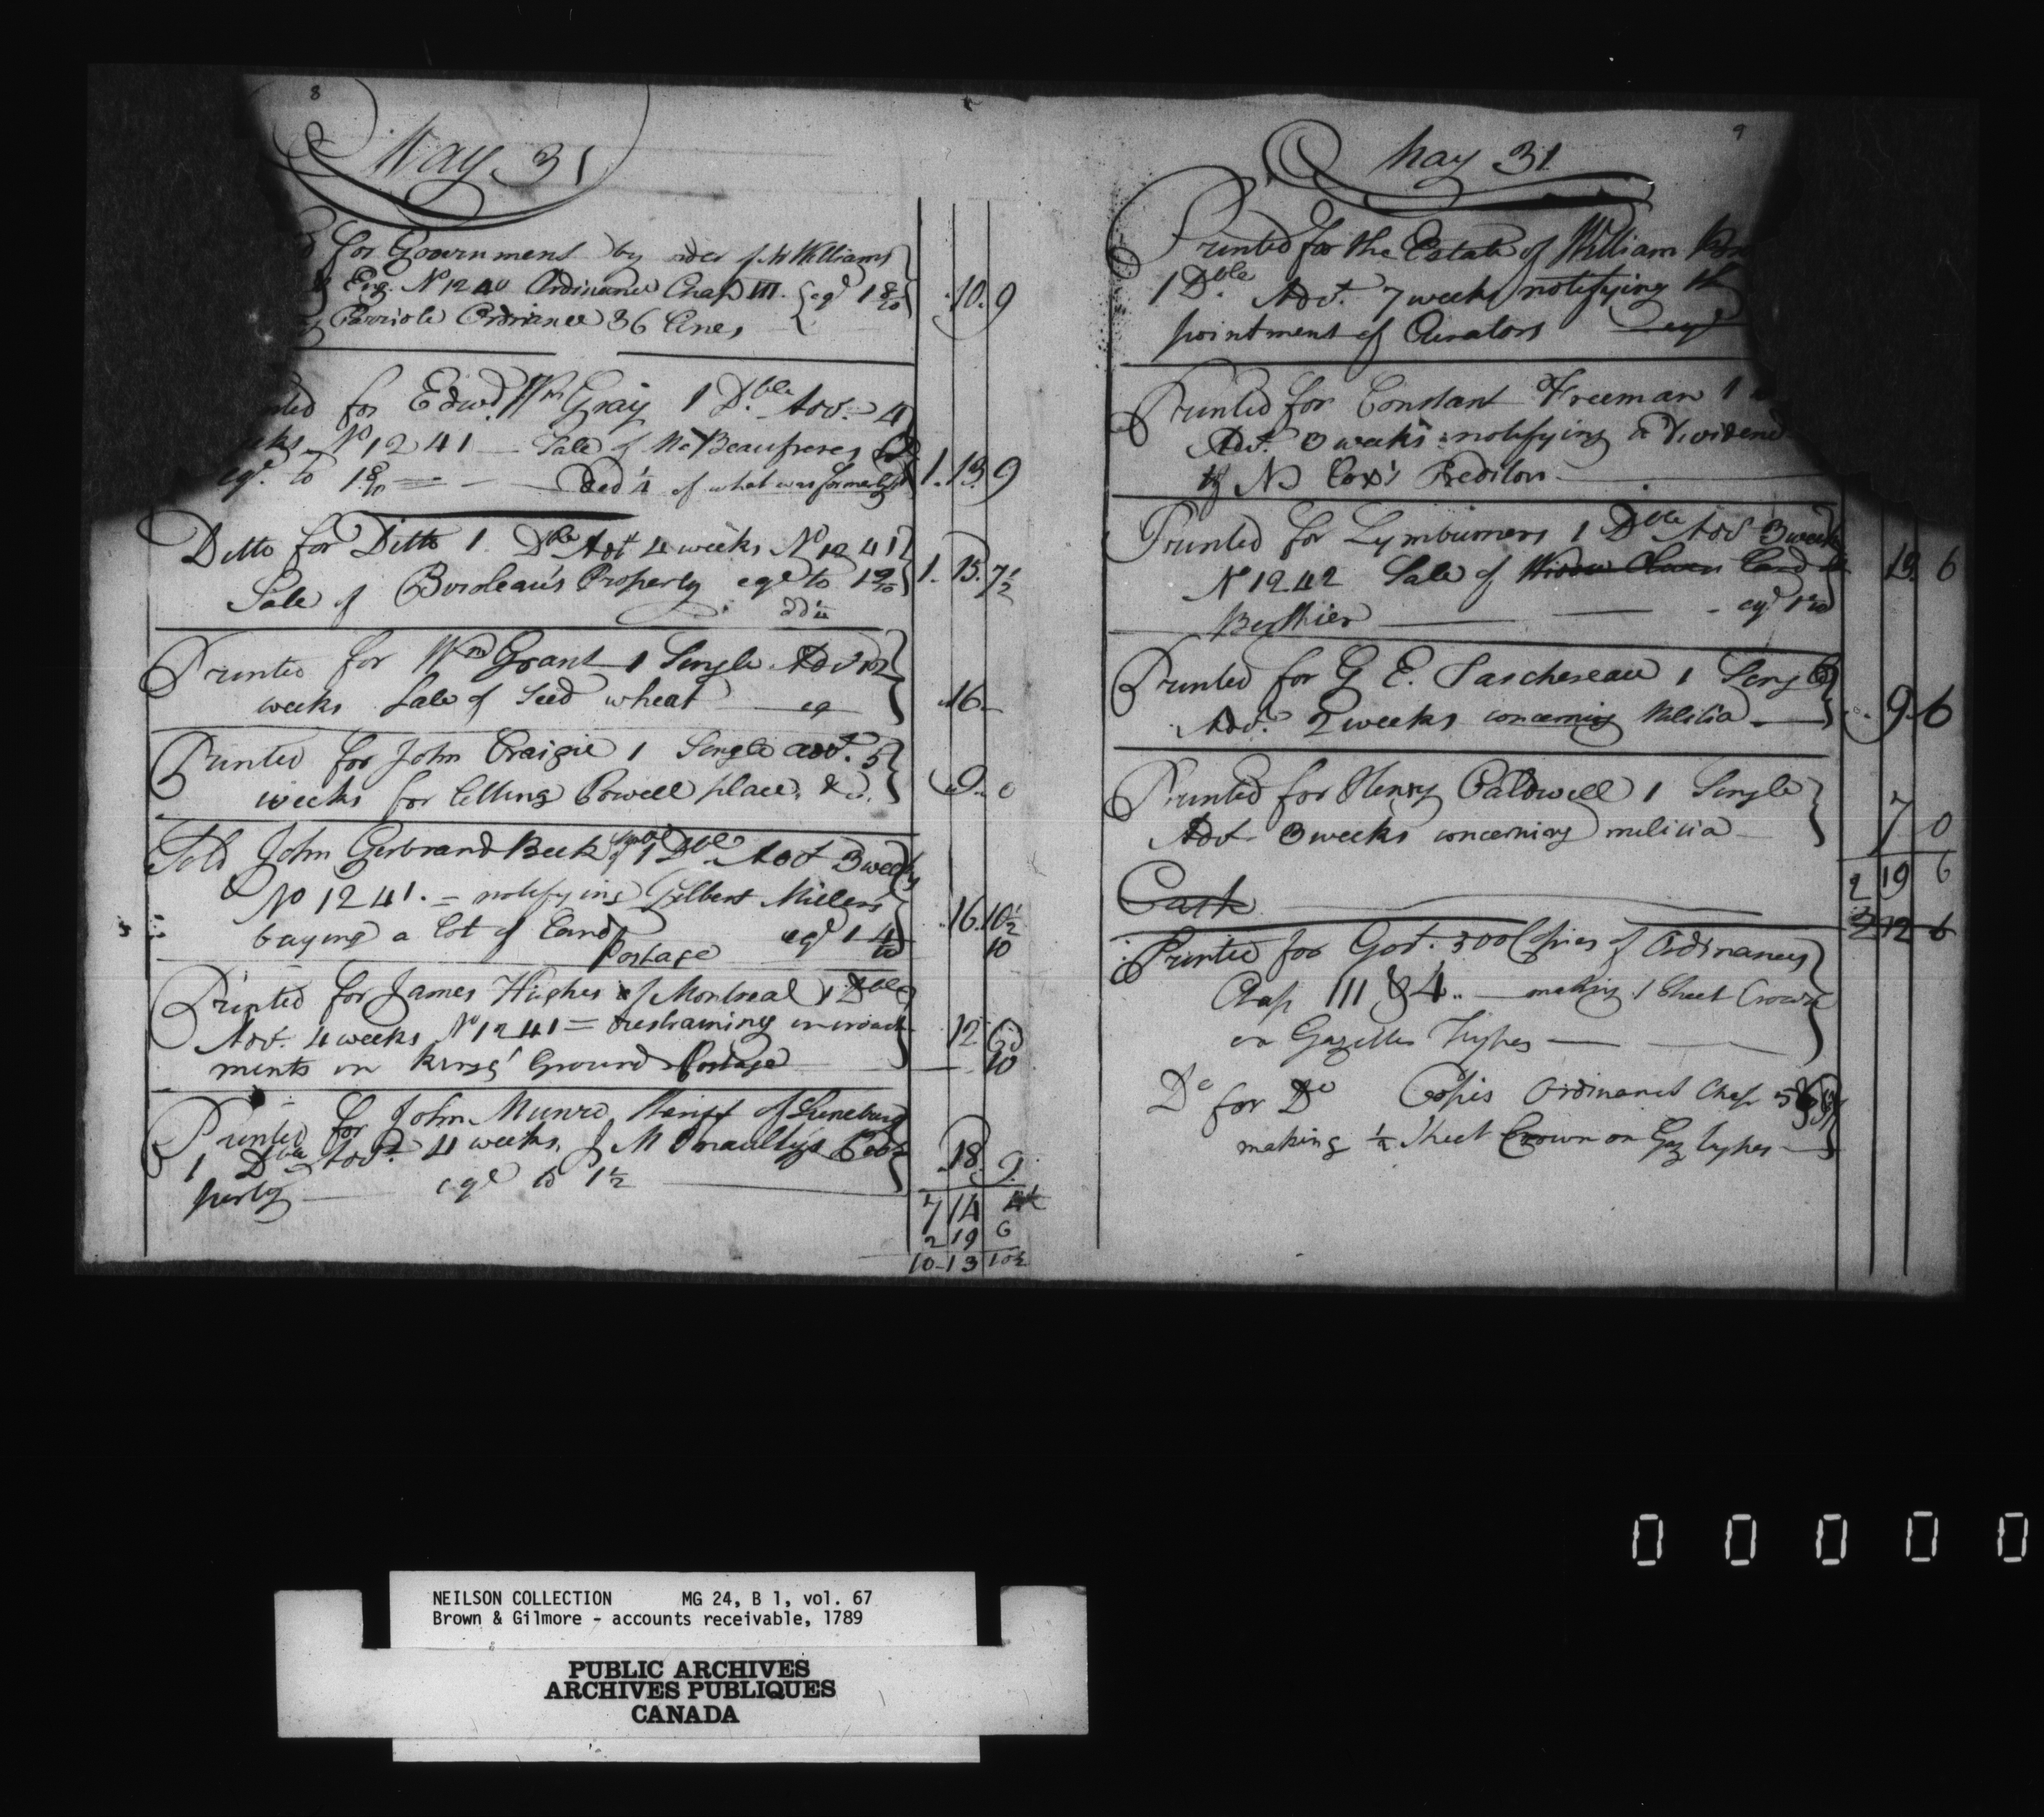 8
May 31
for Government by order of Mr Williams
Eng. No 1240 Ordinance Chap III. eql 1 8/10 .10. 9
Ordinance 36 Lines
for Edwd Wm Gray 1 Dble Adv. 4
No 1241 — Sale of
eql to 1 8/10 — Ded'g of what was formerly 1. 13. 9
Ditto for Ditto 1 Dble Advt 4 weeks No 1241
Sale of Bordeau's Property eql to 1. 15. 7½
Printed for Wm Grant 1 Single Advt 2
weeks Sale of Seed wheat — eq .16. —
Printed for John Craigie 1 Single advt. 5
weeks for letting Powell place, &c. 9. 0
Sold John Gerbrand Beek 1 Dble Advt 3 weeks
No 1241. = notifying Gilbert Millers
buying a lot of Land eql 1 4/10 .16. 10½
Postage 10
Printed for James Hughes of Montreal 1 Dble
Advt. 4 weeks No 1241 = restraining incroach- 12
ments on Kings' Ground Postage — 10
Printed for John Munro, Sheriff of Luneburg
1 Dble Advt 4 weeks, J M Pro= .18. 9.
perty — eql to 1½
7 14
2 19 6
10-13 10½
9
May 31
Printed for the Estate of William
1 Dble Advt. 7 weeks notifying th
pointment of Curators — eql
Printed for Constant Freeman 1
Advt. 3 weeks notifying a Dividend
of N Cox's Creditors —
Printed for Lymburners 1 Dble Advt 3 weeks
No 1242 Sale of Widow Land 13 6
Berthier — eql
Printed for G E. Taschereau 1 Single
Advt. 2 weeks concerning Militia — 9. 6
Printed for Henry Caldwell 1 Single
Advt 3 weeks concerning milicia — 7 0
2 19 6
Cash
2 12 6
Printed for Govt. 300 Copies of Ordinances
Chap III & 4.. — making 1 Sheet Crown
on Gazette Types —
Do for Do Copies Ordinances Chap 5
making ½ Sheet Crown on Gaz types —
0 0 0 0 0
NEILSON COLLECTION MG 24, B 1, vol. 67
Brown & Gilmore - accounts receivable, 1789
PUBLIC ARCHIVES
ARCHIVES PUBLIQUES
CANADA